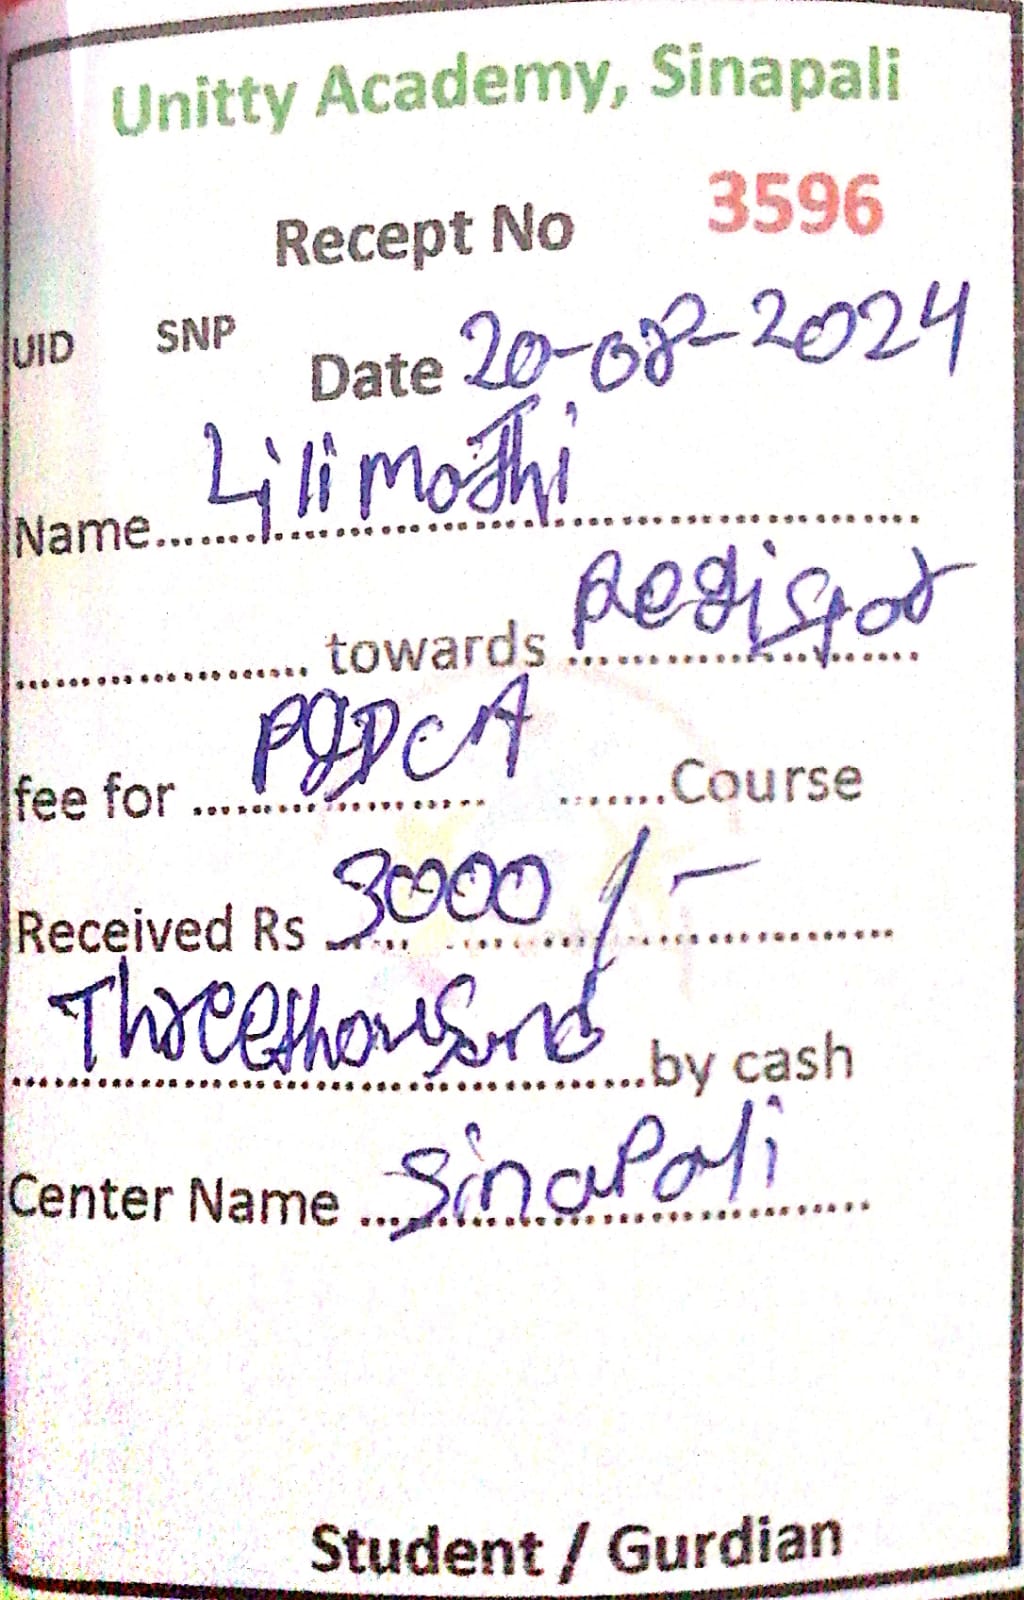 Unitty Academy, Sinapali
Recept No 3596
UID SNP Date 20-08-2024
Name Lili Mathi
towards Registor
fee for PGDCA Course
Received Rs 3000/-
Threethousand by cash
Center Name Sinapali
Student / Gurdian